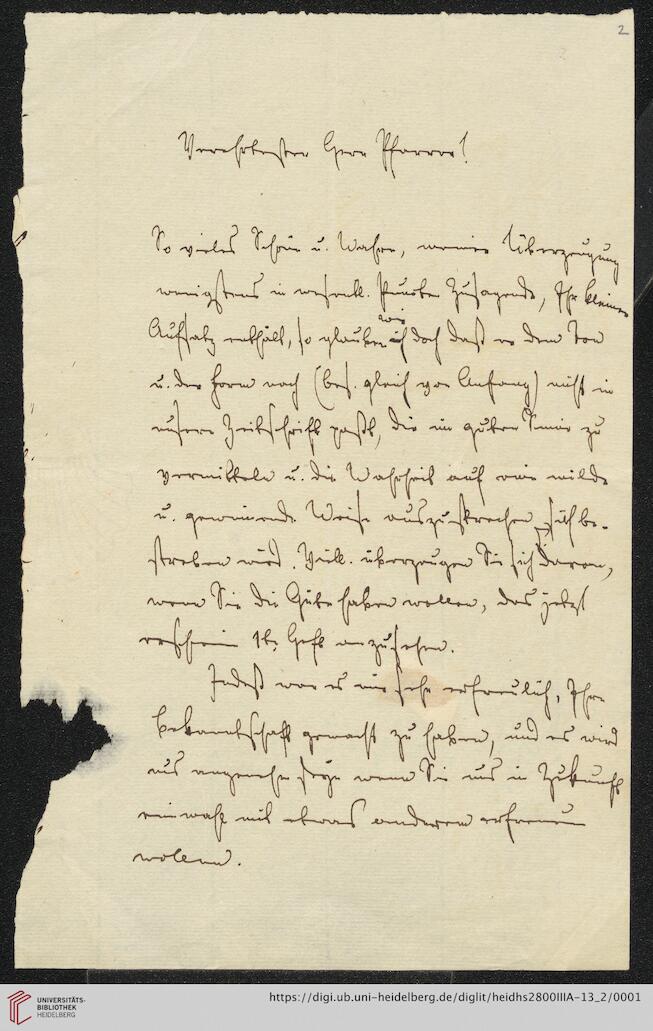 2
Verehrtester Herr Pfarrer!
So vieles Schöne u. Wahre, meiner Überzeugung
wenigstens in wesentl. Punkten Zusagende, Ihr kleiner
Aufsatz enthält, so glauben wir doch daß er dem Ton
u. der Form nach (bes. gleich von Anfang) nicht in
unsere Zeitschrift paßt, die im guten Sinne zu
vermitteln u. die Wahrheit auf eine milde
u. gewinnende Weise auszusprechen sich be-
streben wird. Vill. überzeugen Sie sich davon,
wenn Sie die Güte haben wollen, das jetzt
erschein 1t. Heft anzusehen.
Indeß war es mir sehr erfreulich, Ihre
Bekanntschaft gemacht zu haben, und es wird
uns angenehm seyn wenn Sie uns in Zukunft
einmahl mit etwas anderem erfreuen
wollen.
UNIVERSITÄTS-
BIBLIOTHEK
HEIDELBERG
https://digi.ub.uni-heidelberg.de/diglit/heidhs2800IIIA-13_2/0001